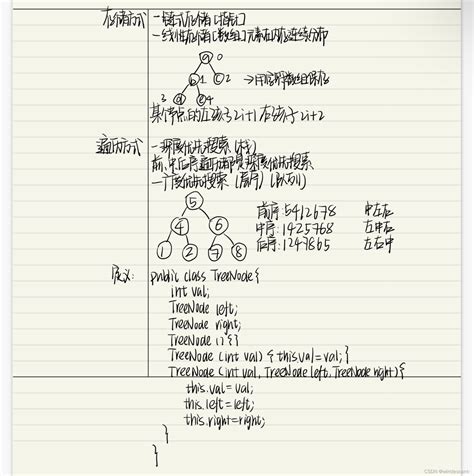 存储方式 -链式存储(指针)
-线性存储(数组)元素在内存连续分布
a 0
b 1 c 2 →用字符数组保存
3 d e 4
某个节点的左孩子2i+1 右孩子2i+2
遍历方式 -深度优先搜索(栈)
前、中、后序遍历都是深度优先搜索
-广度优先搜索(层序)(队列)
5
4 6
1 2 7 8
前序:5412678 中左右
中序:1425768 左中右
后序:1247865 左右中
定义: public class TreeNode{
int val;
TreeNode left;
TreeNode right;
TreeNode () {}
TreeNode (int val) { this.val = val; }
TreeNode (int val, TreeNode left, TreeNode right) {
this.val = val;
this.left = left;
this.right = right;
}
}